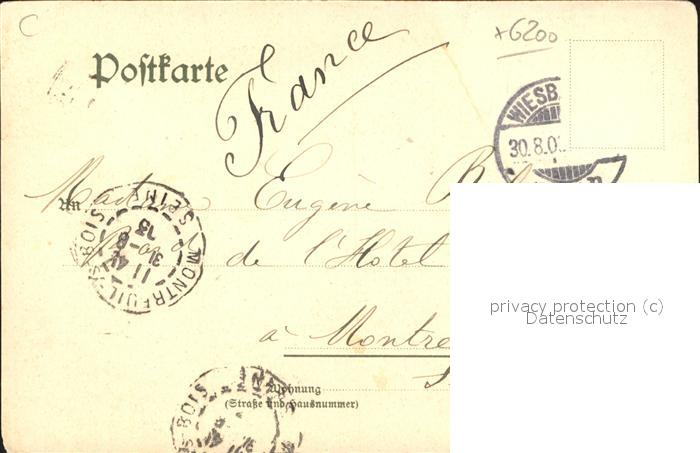 C
+6200
Postkarte
France
WIESB
30.8.0
An
Eugène B
de l'Hotel
à Montre
MONTREUIL-S-BOIS
SEINE
11 4
31-8
privacy protection (c)
Datenschutz
Wohnung
(Straße und Hausnummer)
S-BOIS